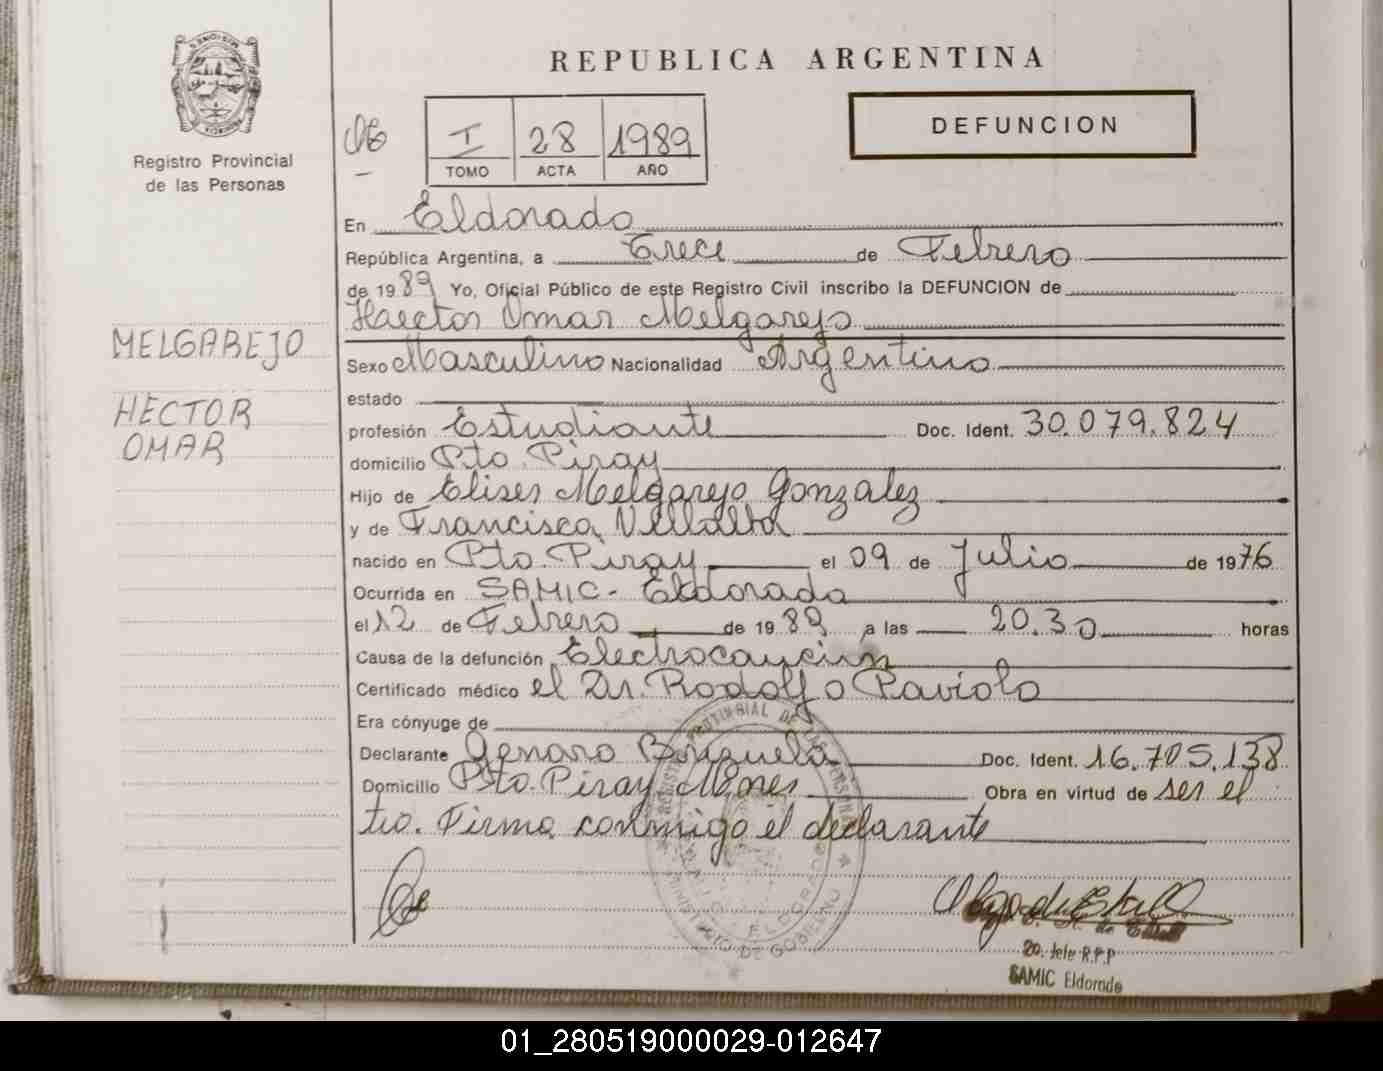 REPUBLICA ARGENTINA
MISIONES
PROVINCIA
Registro Provincial
de las Personas
I 28 1989
TOMO ACTA AÑO
DEFUNCION
En Eldorado
República Argentina, a Trece de Febrero
de 1989 Yo, Oficial Público de este Registro Civil inscribo la DEFUNCION de
Haector Omar Melgarejo
MELGAREJO
HECTOR
OMAR
Sexo Masculino Nacionalidad Argentino
estado
profesión Estudiante Doc. Ident. 30.079.824
domicilio Pto. Piray
Hijo de Elises Melgarejo Gonzalez
y de Francisca Villalba
nacido en Pto. Piray el 09 de Julio de 1976
Ocurrida en SAMIC - Eldorado
el 12 de Febrero de 1989 a las 20.30 horas
Causa de la defunción
Certificado médico el Dr. Rodolfo Raviolo
Era cónyuge de
Declarante Genaro Doc. Ident. 16.705.138
Domicilio Pto. Piray Mnes Obra en virtud de ser el
tio. Firma conmigo el declarante
REGISTRO PROVINCIAL DE LAS PERSONAS
MINISTERIO DE GOBIERNO
ELDORADO
2o. Jefe R.P.P
SAMIC Eldorado
01_280519000029-012647